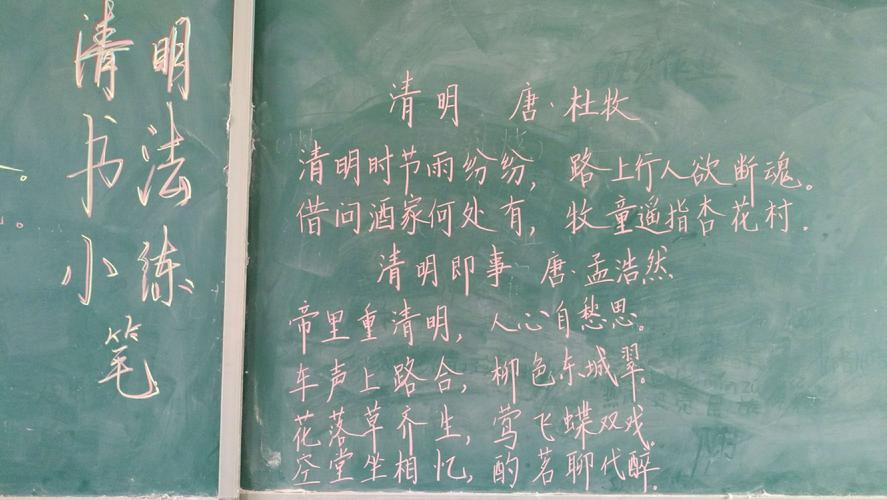 清明
书法
小练
笔
清明 唐·杜牧
清明时节雨纷纷，路上行人欲断魂。
借问酒家何处有，牧童遥指杏花村.
清明即事 唐·孟浩然
帝里重清明，人心自愁思。
车声上路合，柳色东城翠.
花落草齐生，莺飞蝶双戏.
空堂坐相忆，酌茗聊代醉.